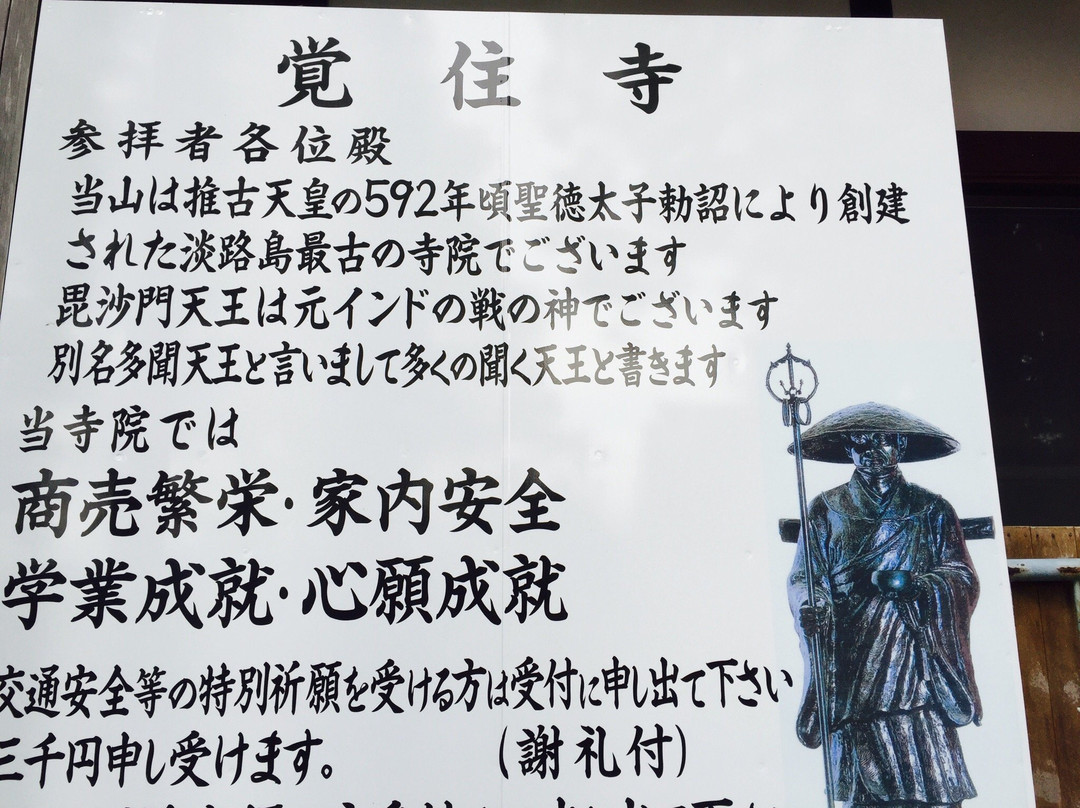 覚住寺
参拝者各位殿
当山は推古天皇の592年頃聖徳太子勅詔により創建
された淡路島最古の寺院でございます
毘沙門天王は元インドの戦の神でございます
別名多聞天王と言いまして多くの聞く天王と書きます
当寺院では
商売繁栄・家内安全
学業成就・心願成就
交通安全等の特別祈願を受ける方は受付に申し出て下さい
三千円申し受けます。 (謝礼付)